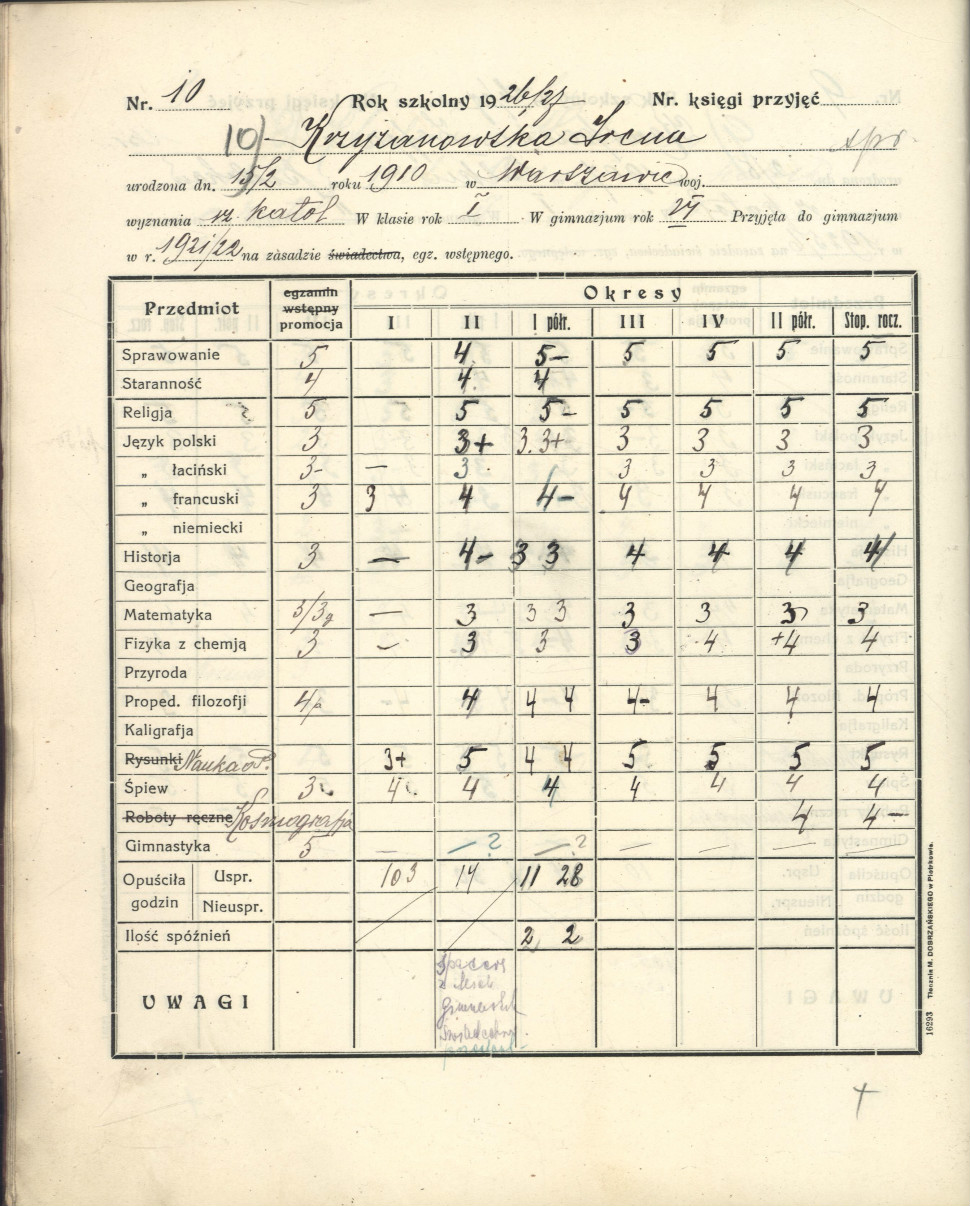 Nr. 10 Rok szkolny 1926/27 Nr. księgi przyjęć
10) Krzyżanowska Irena
urodzona dn. 15/2 roku 1910 w Warszawie woj.
wyznania rz katol W klasie rok I W gimnazjum rok VI Przyjęta do gimnazjum
w r. 1921/22 na zasadzie świadectwa, egz. wstępnego.
Przedmiot egzamin wstępny promocja Okresy
I II I półr. III IV II półr. Stop. rocz.
Sprawowanie 5 4 5- 5 5 5 5
Staranność 4 4 4
Religja 5 5 5- 5 5 5 5
Język polski 3 3+ 3. 3+ 3 3 3 3
„ łaciński 3- — 3 3 3 3 3
„ francuski 3 3 4 4- 4 4 4 4
„ niemiecki
Historja 3 — 4- 3 3 4 4 4 4
Geografja
Matematyka 3/3 — 3 3 3 3 3 3 3
Fizyka z chemją 3 — 3 3 3 4 +4 4
Przyroda
Proped. filozofji 4 4 4 4 4- 4 4 4
Kaligrafja
Rysunki Nauka o P. 3+ 5 4 4 5 5 5 5
Śpiew 3 4 4 4 4 4 4 4
Roboty ręczne Kosmografja 4 4-
Gimnastyka 5 — — ? — ? — — — —
Opuściła godzin Uspr. 103 14 11 28
Nieuspr.
Ilość spóźnień 2 2
UWAGI
16293 Tłocznia M. DOBRZAŃSKIEGO w Piotrkowie.